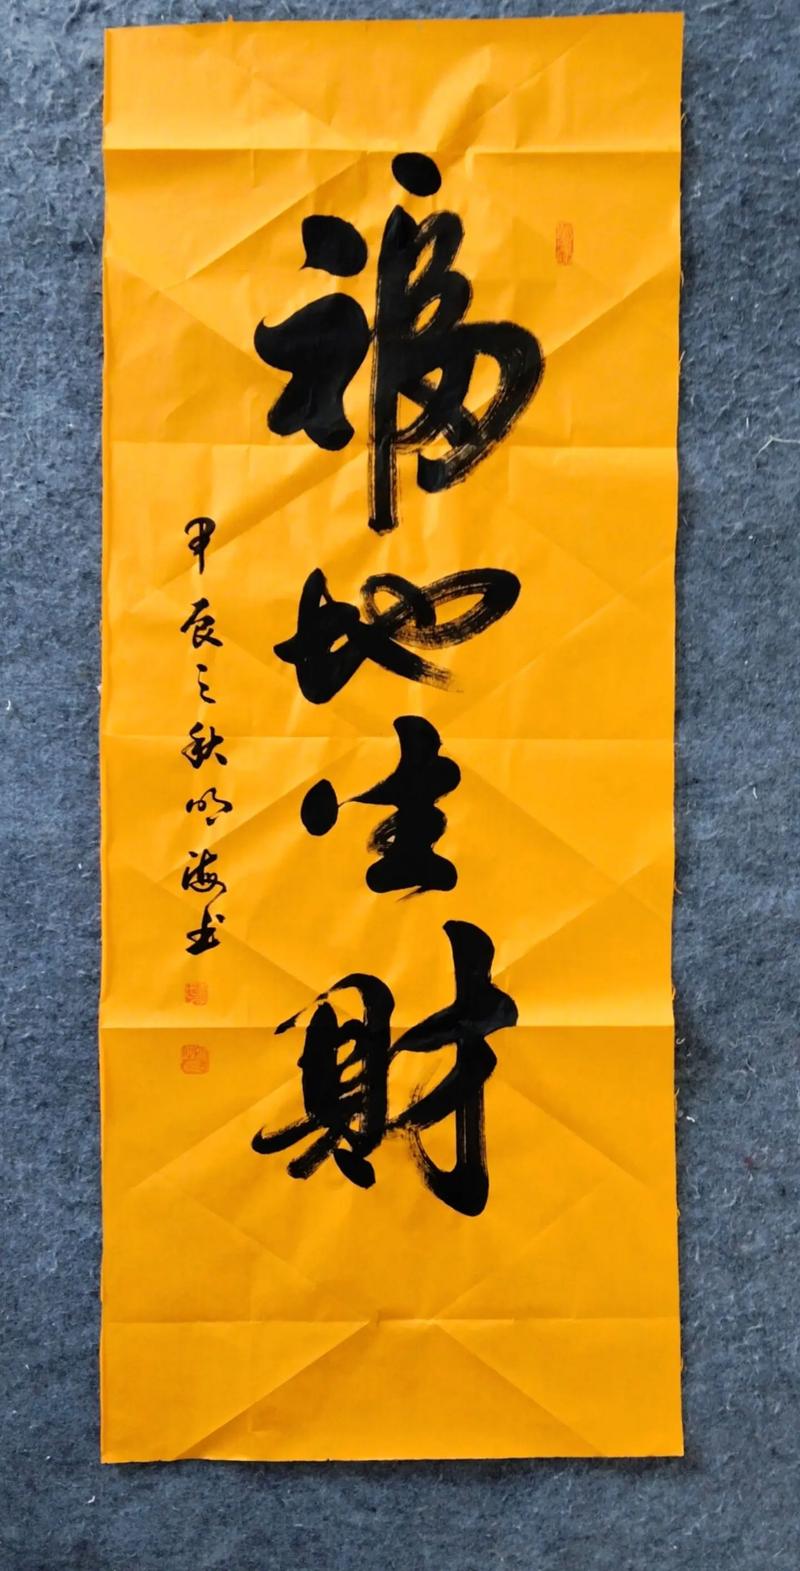 福地生财
甲辰之秋明海书